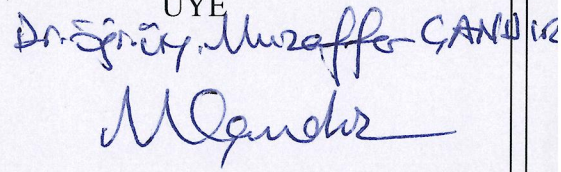 ÜYE
Dr. Öğr. Üy. Muzaffer ÇANDIR
MÇandır